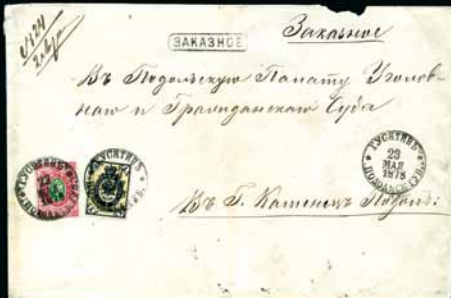 №24
ЗАКАЗНОЕ
Заказное
Въ Подольскую Палату Уголов-
наго и Гражданскаго Суда
ГУСЯТИНЪ
ГУСЯТИНЪ
ГУСЯТИНЪ
23
МАЯ
1878
ПОДОЛЬСК. ГУБ.
Въ Г. Каменецъ Подол: